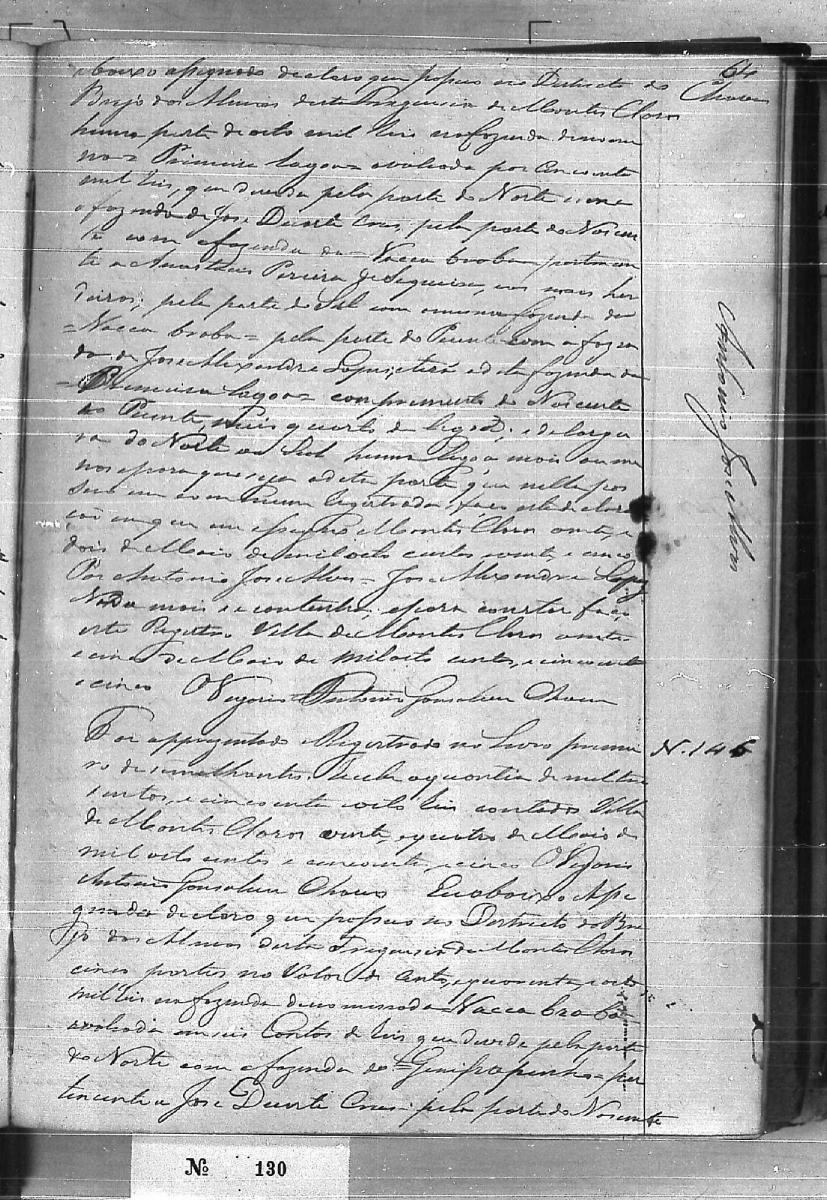 64
Chaves
abaixo assignado declaro que possuo no Destricto do
Brejo das Almas desta Freguesia de Montes Claros
huma parte de oito mil reis na fazenda denomi
na = Primeira Lagoa = avaliada por cincoenta
mil reis, que devide pela parte do Norte com
a fazenda de Jose Duarte Cruz, pela parte do Nascen
te com a fazenda da = Vacca braba = pertencen
te a Anastacio Pereira de Sequeira, e os mais her
deiros; pela parte do Sul com a mesma fazenda da
= Vacca braba = pela parte do Puente com a fazen
da de Jose Alexandre Lopes; terá a dita fazenda da
= Primeira Lagoa = comprimento do Nascente
ao Puente, quarto de legoa; e de largu
ra do Norte ao Sul huma legoa mais ou me
nos e para que seja a dita parte que nella pos
suo em commum registrada faço esta declara
ção em que me assigno Montes Claros vinte, e
dois de Maio de mil oito centos e cinco
Por Antonio Jose Alves = Jose Alexandre Lopes
Nada mais se continha, e para constar faço
este Registro Villa de Montes Claros vinte
e cinco de Maio de mil oito centos, e cincoenta
e cinco O Vigario Antonio Gonsalves Chaves
Antonio Jose Alves
Foi apprezentado e Registrado no Livro primei
N. 146
ro de semelhantes. Recebi a quantia de mil
centos, e cincoenta e oito reis contados Villa
de Montes Claros vinte, e quatro de Maio de
mil oito centos e cincoenta, e cinco O Vigario
Antonio Gonsalves Chaves Eu abaixo Assi
gnado declaro que possuo no Destricto do Bre
jo das Almas desta Freguesia de Montes Claros
cinco partes no Valor de cento, e quarenta, e oito
mil reis na fazenda denominada = Vacca braba =
avaliada em seis Contos de reis que devide pela parte
do Norte com a fazenda do = Genipapinho = per
tencente a Jose Duarte Cruz = pela parte do Nascente
Nº 130